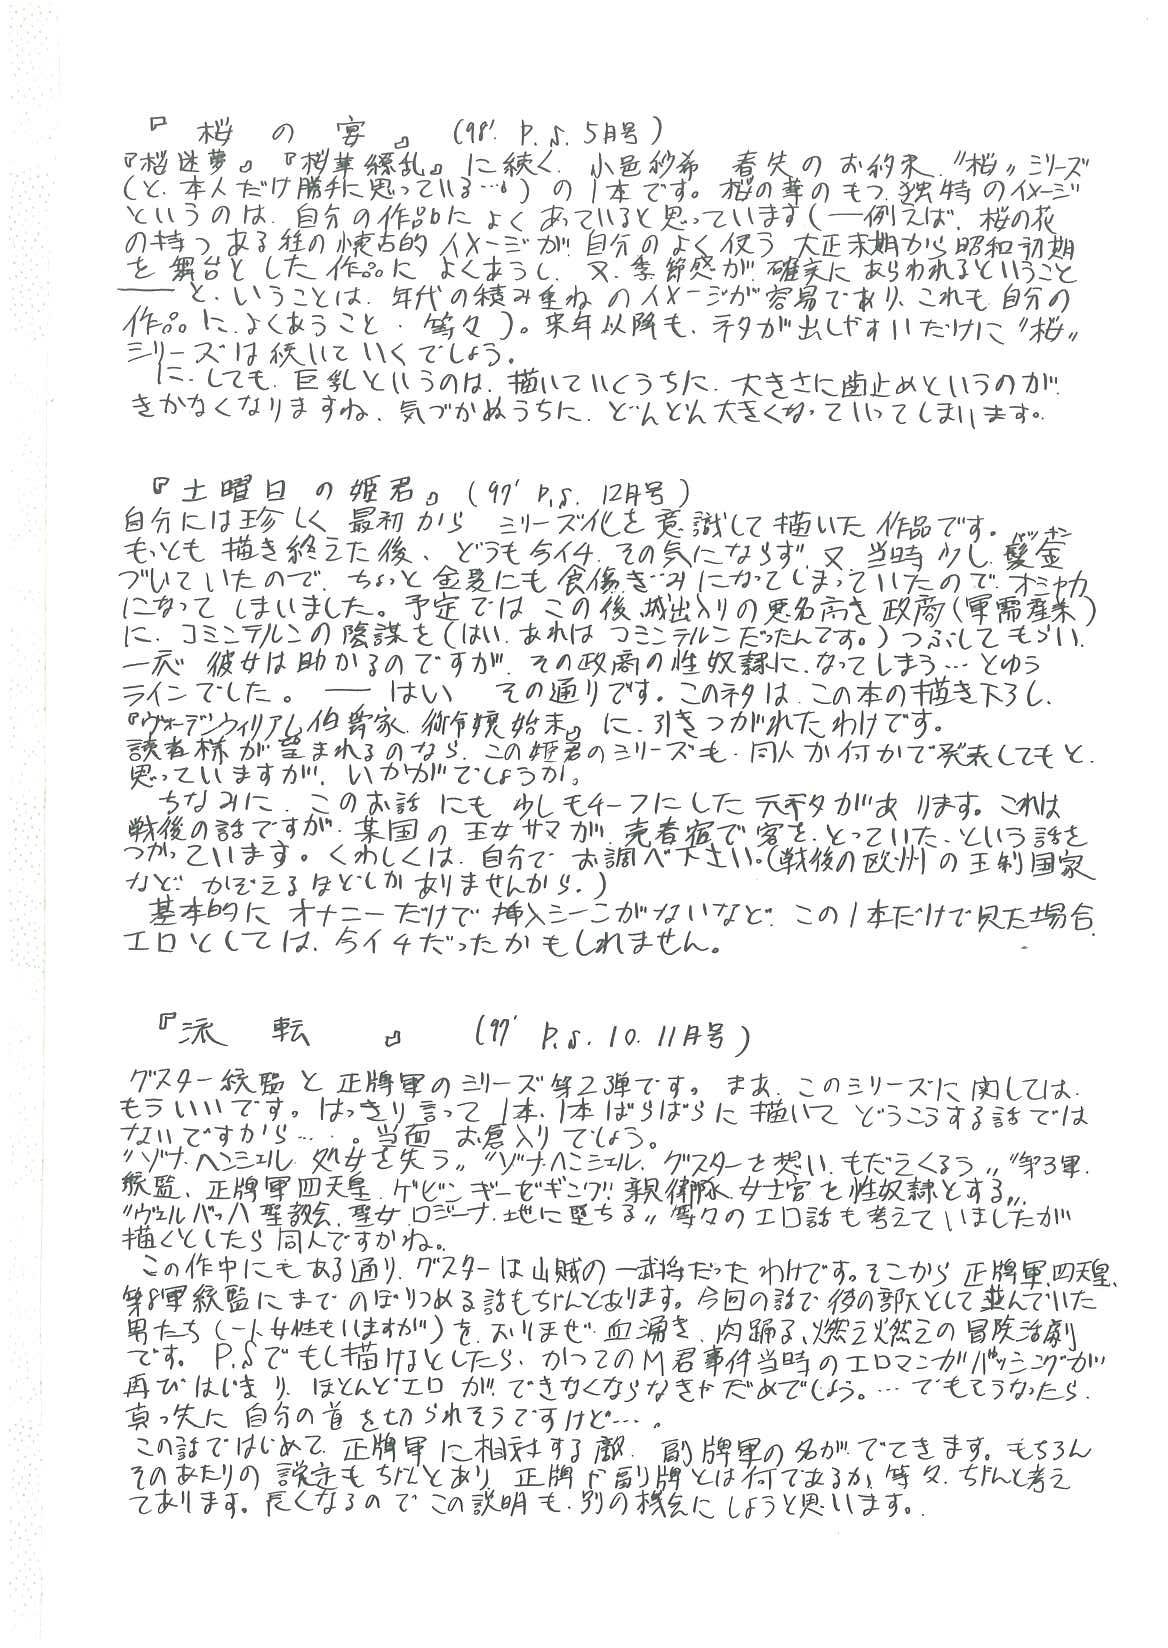 『桜の宴』 (98'. P.S. 5月号)
『桜迷夢』『桜華繚乱』に続く、小邑紗希 春先のお約束、〝桜〟シリーズ
(と、本人だけ勝手に思っている…)の1本です。桜の華のもつ、独特のイメージ
というのは、自分の作品によくあっていると思っています(――例えば、桜の花
の持つ、ある種の懐古的イメージが、自分のよく使う大正末期から昭和初期
を舞台とした作品によくあうし、又、季節感が確実にあらわれるということ
――と、いうことは、年代の積み重ねのイメージが容易であり、これも自分の
作品に、よくあうこと、等々)。来年以降も、ネタが出しやすいだけに〝桜〟
シリーズは続いていくでしょう。
に、しても、巨乳というのは、描いていくうちに、大きさに歯止めというのが、
きかなくなりますね、気づかぬうちに、どんどん大きくなっていってしまいます。
『土曜日の姫君』(97' P.S. 12月号)
自分には珍しく最初からシリーズ化を意識して描いた作品です。
もっとも描き終えた後、どうも今イチ、その気にならず、又、当時少し髪金
づいていたので、ちょっと金髪にも食傷ぎみになってしまっていたので、オシャカ
になってしまいました。予定ではこの後、城出入りの悪名高き政商(軍需産業)
に、コミンテルンの陰謀を(はい、あれはコミンテルンだったんです。)つぶしてもらい、
一応彼女は助かるのですが、その政商の性奴隷に、なってしまう…とゆう
ラインでした。――はい その通りです。このネタは、この本の描き下ろし、
『ヴォーデンウィリアム伯爵家、御令嬢始末』に、引きつがれたわけです。
読者様が望まれるのなら、この姫君のシリーズも、同人か何かで発表してもと、
思っていますが、いかがでしょうか。
ちなみに、このお話にも少しモチーフにした元ネタがあります。これは
戦後の話ですが、某国の王女サマが、売春宿で客を、とっていた、という話を
つかっています。くわしくは、自分でお調べ下さい。(戦後の欧州の王制国家
など、かぞえるほどしかありませんから。)
基本的にオナニーだけで挿入シーンがないなど、この1本だけで見た場合、
エロとしては、今イチだったかもしれません。
『流転』 (97' P.S. 10. 11月号)
グスター統監と正牌軍のシリーズ第2弾です。まあ、このシリーズに関しては、
もういいです。はっきり言って1本、1本ばらばらに描いてどうこうする話では
ないですから…。当面お倉入りでしょう。
〝ゾナ・ヘンシェル、処女を失う〟〝ゾナ・ヘンシェル、グスターを想い、もだえくるう〟〝第3軍
統監、正牌軍四天皇、ゲビンギーゼギング!親衛隊、女士官を性奴隷とする〟、
〝ヴェルバッハ聖教会、聖女、ロジーナ、地に堕ちる〟等々のエロ話も考えていましたが
描くとしたら同人ですかね。
この作中にもある通り、グスターは山賊の一武将だったわけです。そこから正牌軍、四天皇、
第8軍統監にまでのぼりつめる話もちゃんとあります。今回の話で後の部下として並んでいた
男たち(一人女性もいますが)を、おりまぜ、血湧き、肉踊る、燃え燃えの冒険活劇
です。P.Sでもし描けるとしたら、かつてのM君事件当時のエロマンガバッシングが
再びはじまり、ほとんどエロができなくならなきゃだめでしょう。…でもそうなったら、
真っ先に自分の首を切られそうですけど…。
この話ではじめて、正牌軍に相対する敵、副牌軍の名がでてきます。もちろん
そのあたりの設定もちゃんとあり、正牌や副牌とは何であるか、等々、ちゃんと考え
てあります。長くなるのでこの説明も、別の機会にしようと思います。